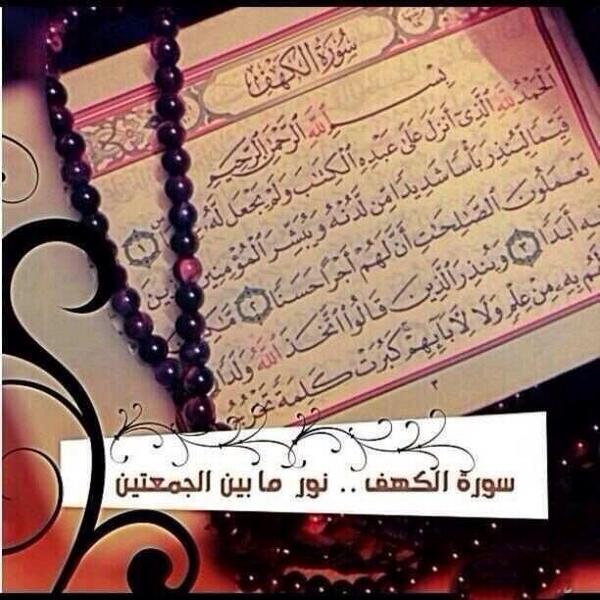 سورة الكهف
بسم الله الرحمن الرحيم
الحمد لله الذي أنزل على عبده الكتب ولم يجعل له
قيما لينذر بأسا شديدا من لدنه ويبشر المؤمنين
يعملون الصلحت أن لهم أجرا حسنا ٢
أبدا ٣ وينذر الذين قالوا اتخذ الله ولدا
به من علم ولا لآبائهم كبرت كلمة
٣
سورة الكهف .. نور ما بين الجمعتين